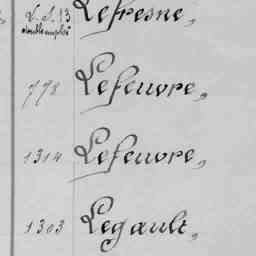 V. S. 13 Lefresne,
double emploi
778 Lefeuvre,
1314 Lefeuvre,
1303 Legault,